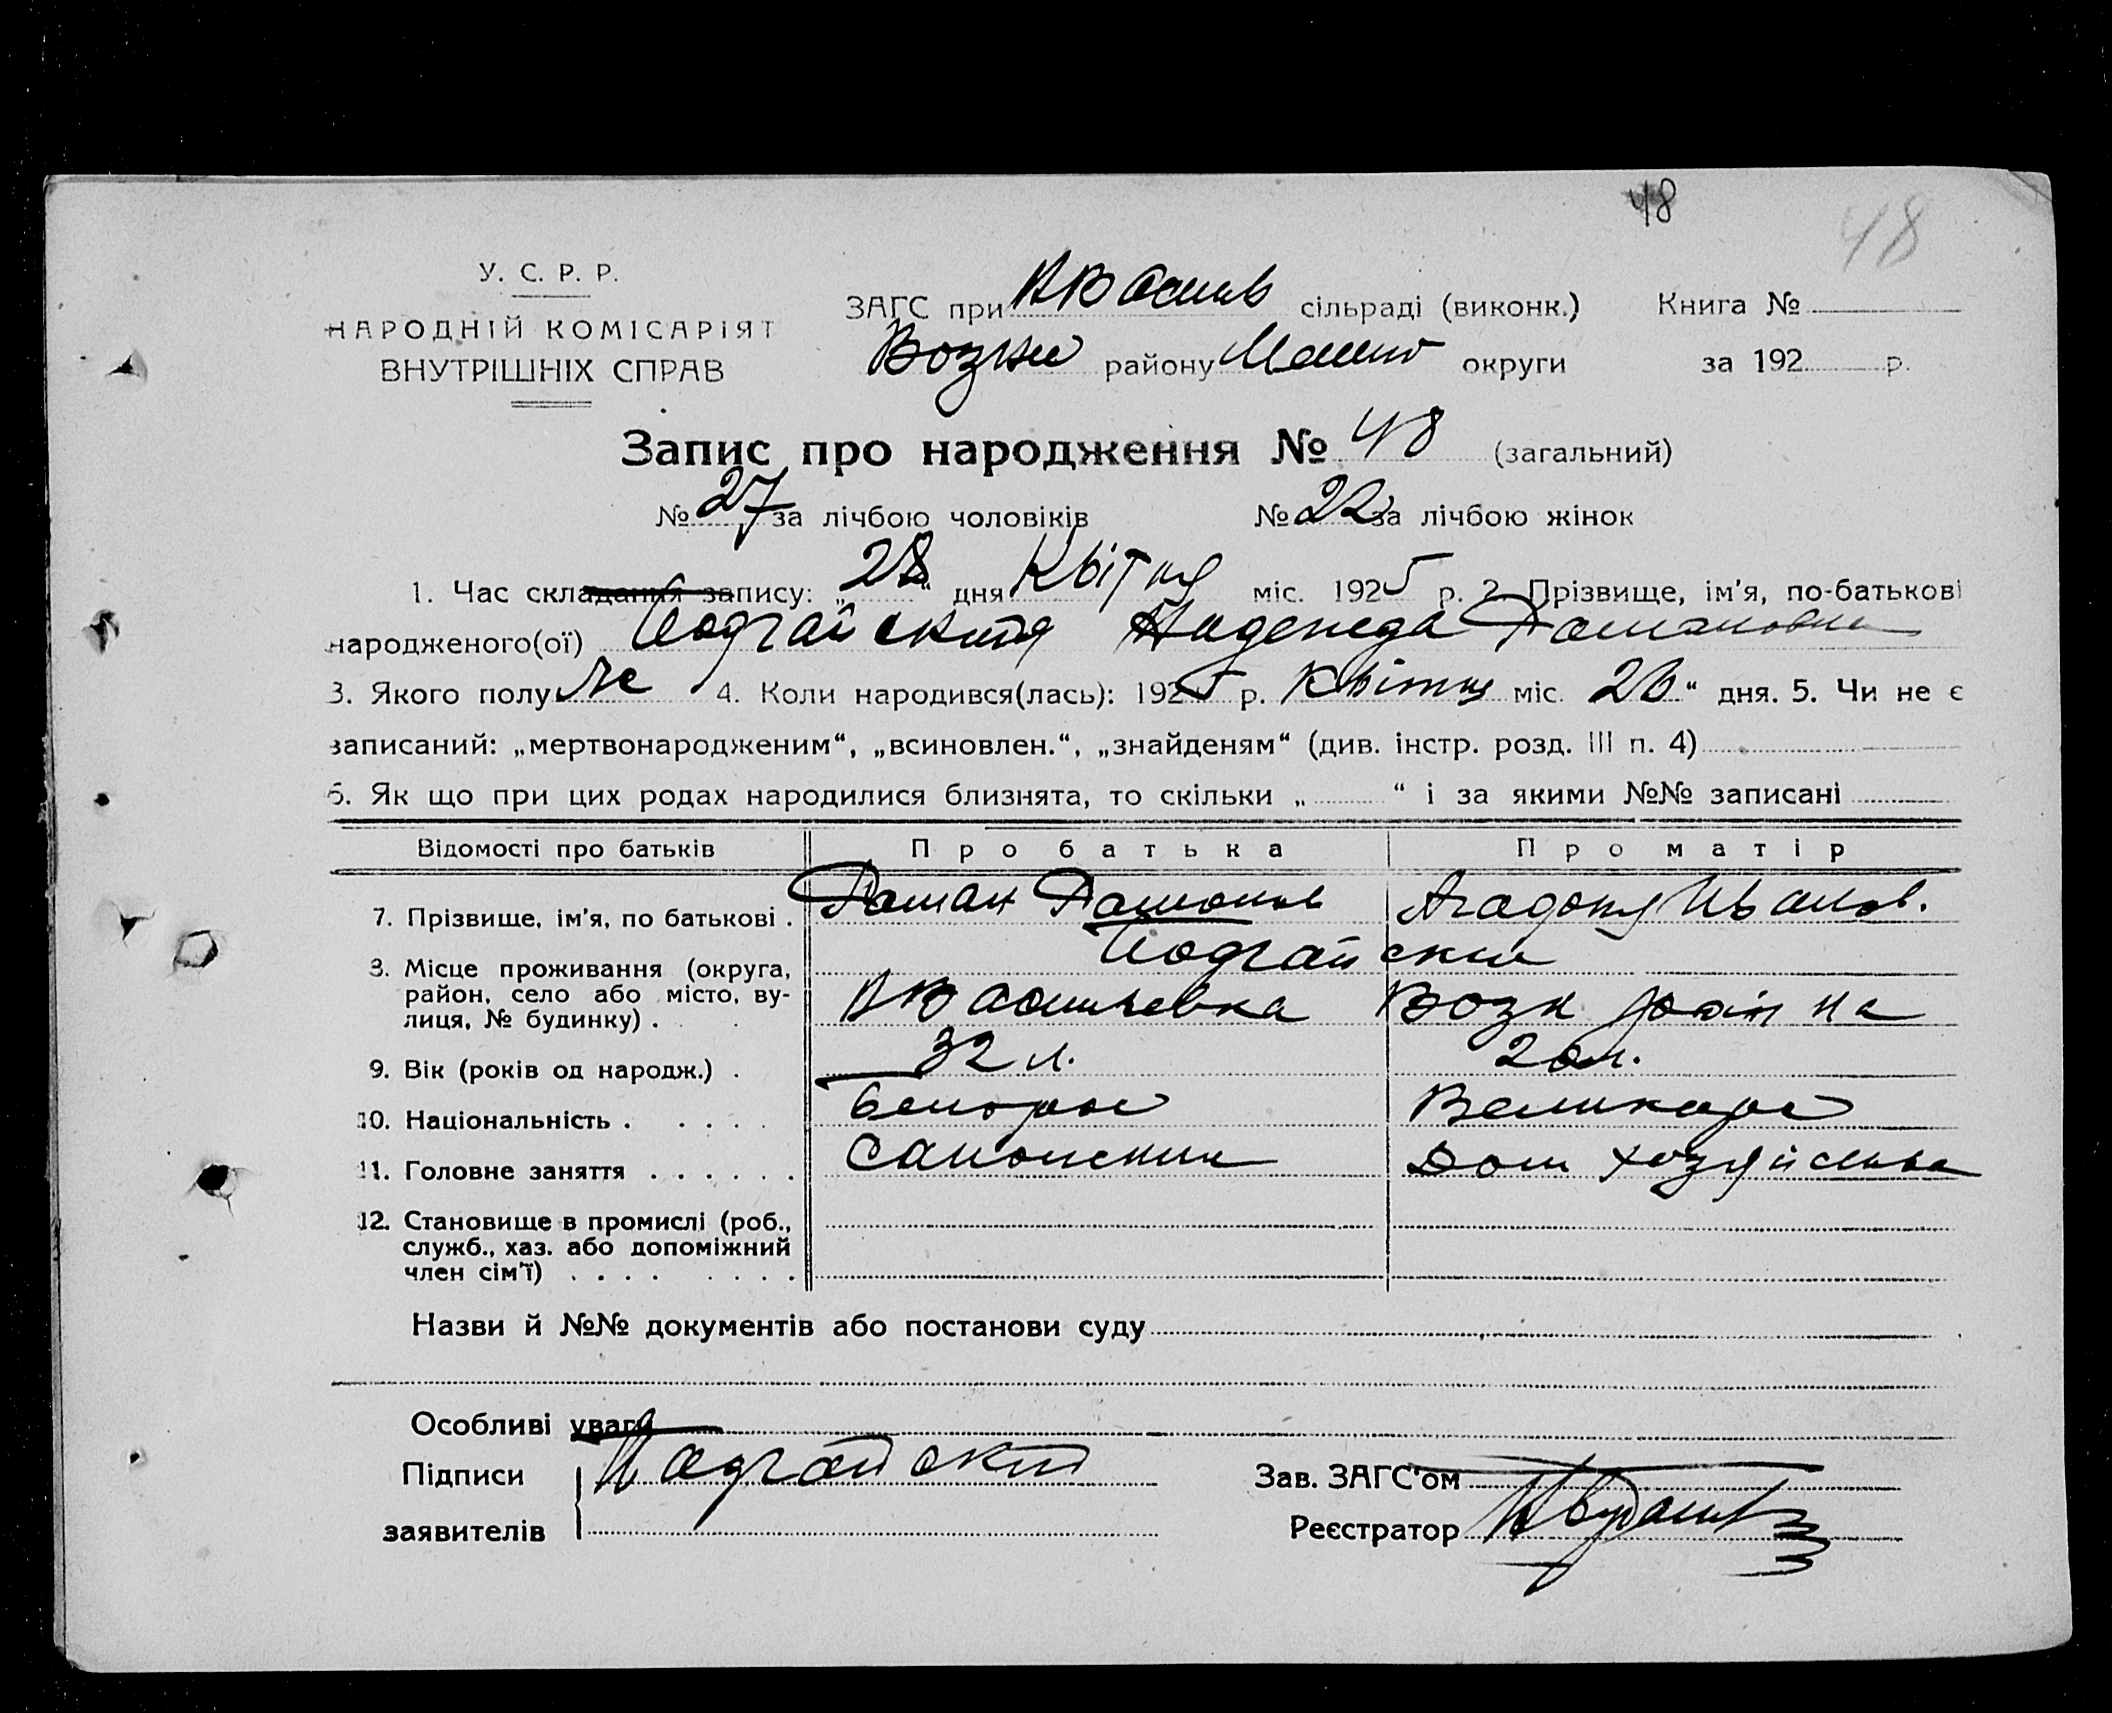 48
48
У. С. Р. Р.
НАРОДНІЙ КОМІСАРІЯТ
ВНУТРІШНІХ СПРАВ
ЗАГС при сільраді (виконк.) Книга №
району округи за 192 р.
Запис про народження № 48 (загальний)
№ 27 за лічбою чоловіків № 22 за лічбою жінок
1. Час складання запису: „28“ дня Квітня міс. 1925 р. 2. Прізвище, ім'я, по-батькові
народженого(ої) Надежда Романовна
3. Якого полу же 4. Коли народився(лась): 1925 р. Квітня міс. 26“ дня. 5. Чи не є
записаний: „мертвонародженим“, „всиновлен.“, „знайденям“ (див. інстр. розд. III п. 4)
6. Як що при цих родах народилися близнята, то скільки „ “ і за якими №№ записані
Відомості про батьків Про батька Про матір
7. Прізвище, ім'я, по батькові . Роман Романов Иванов.
8. Місце проживання (округа, район, село або місто, вулиця, № будинку) . В Васильевка Возн
9. Вік (років од народж.) . 32 л. 20 л.
10. Національність . . . . . Белорос Великорос
11. Головне заняття . . . . . . Сапожник Дом хозяйства
12. Становище в промислі (роб.,
служб., хаз. або допоміжний
член сім'ї) . . . . . . . .
Назви й №№ документів або постанови суду
Особливі уваги
Підписи
заявителів
Зав. ЗАГС'ом
Реєстратор